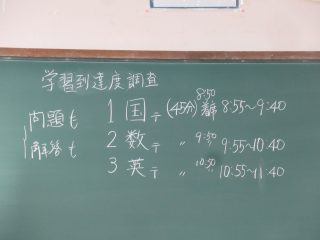 学習到達度調査
問題も 1 国〒 (45分) 8:50 着席 8:55～9:40
解答も 2 数〒 〃 9:50 9:55～10:40
3 英〒 〃 10:50 10:55～11:40